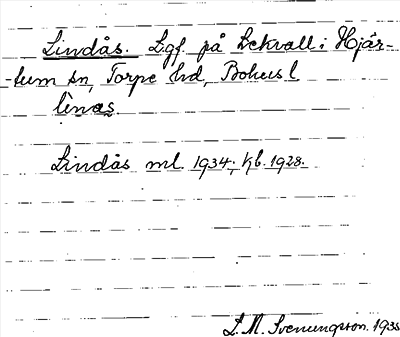 Lindås. Lgf. på Lekvall i Hjär-
-tum sn, Torpe hd, Bohus l
lìnås.
Lindås ml. 1934; Kb. 1928.
L. M. Svenungson. 1935